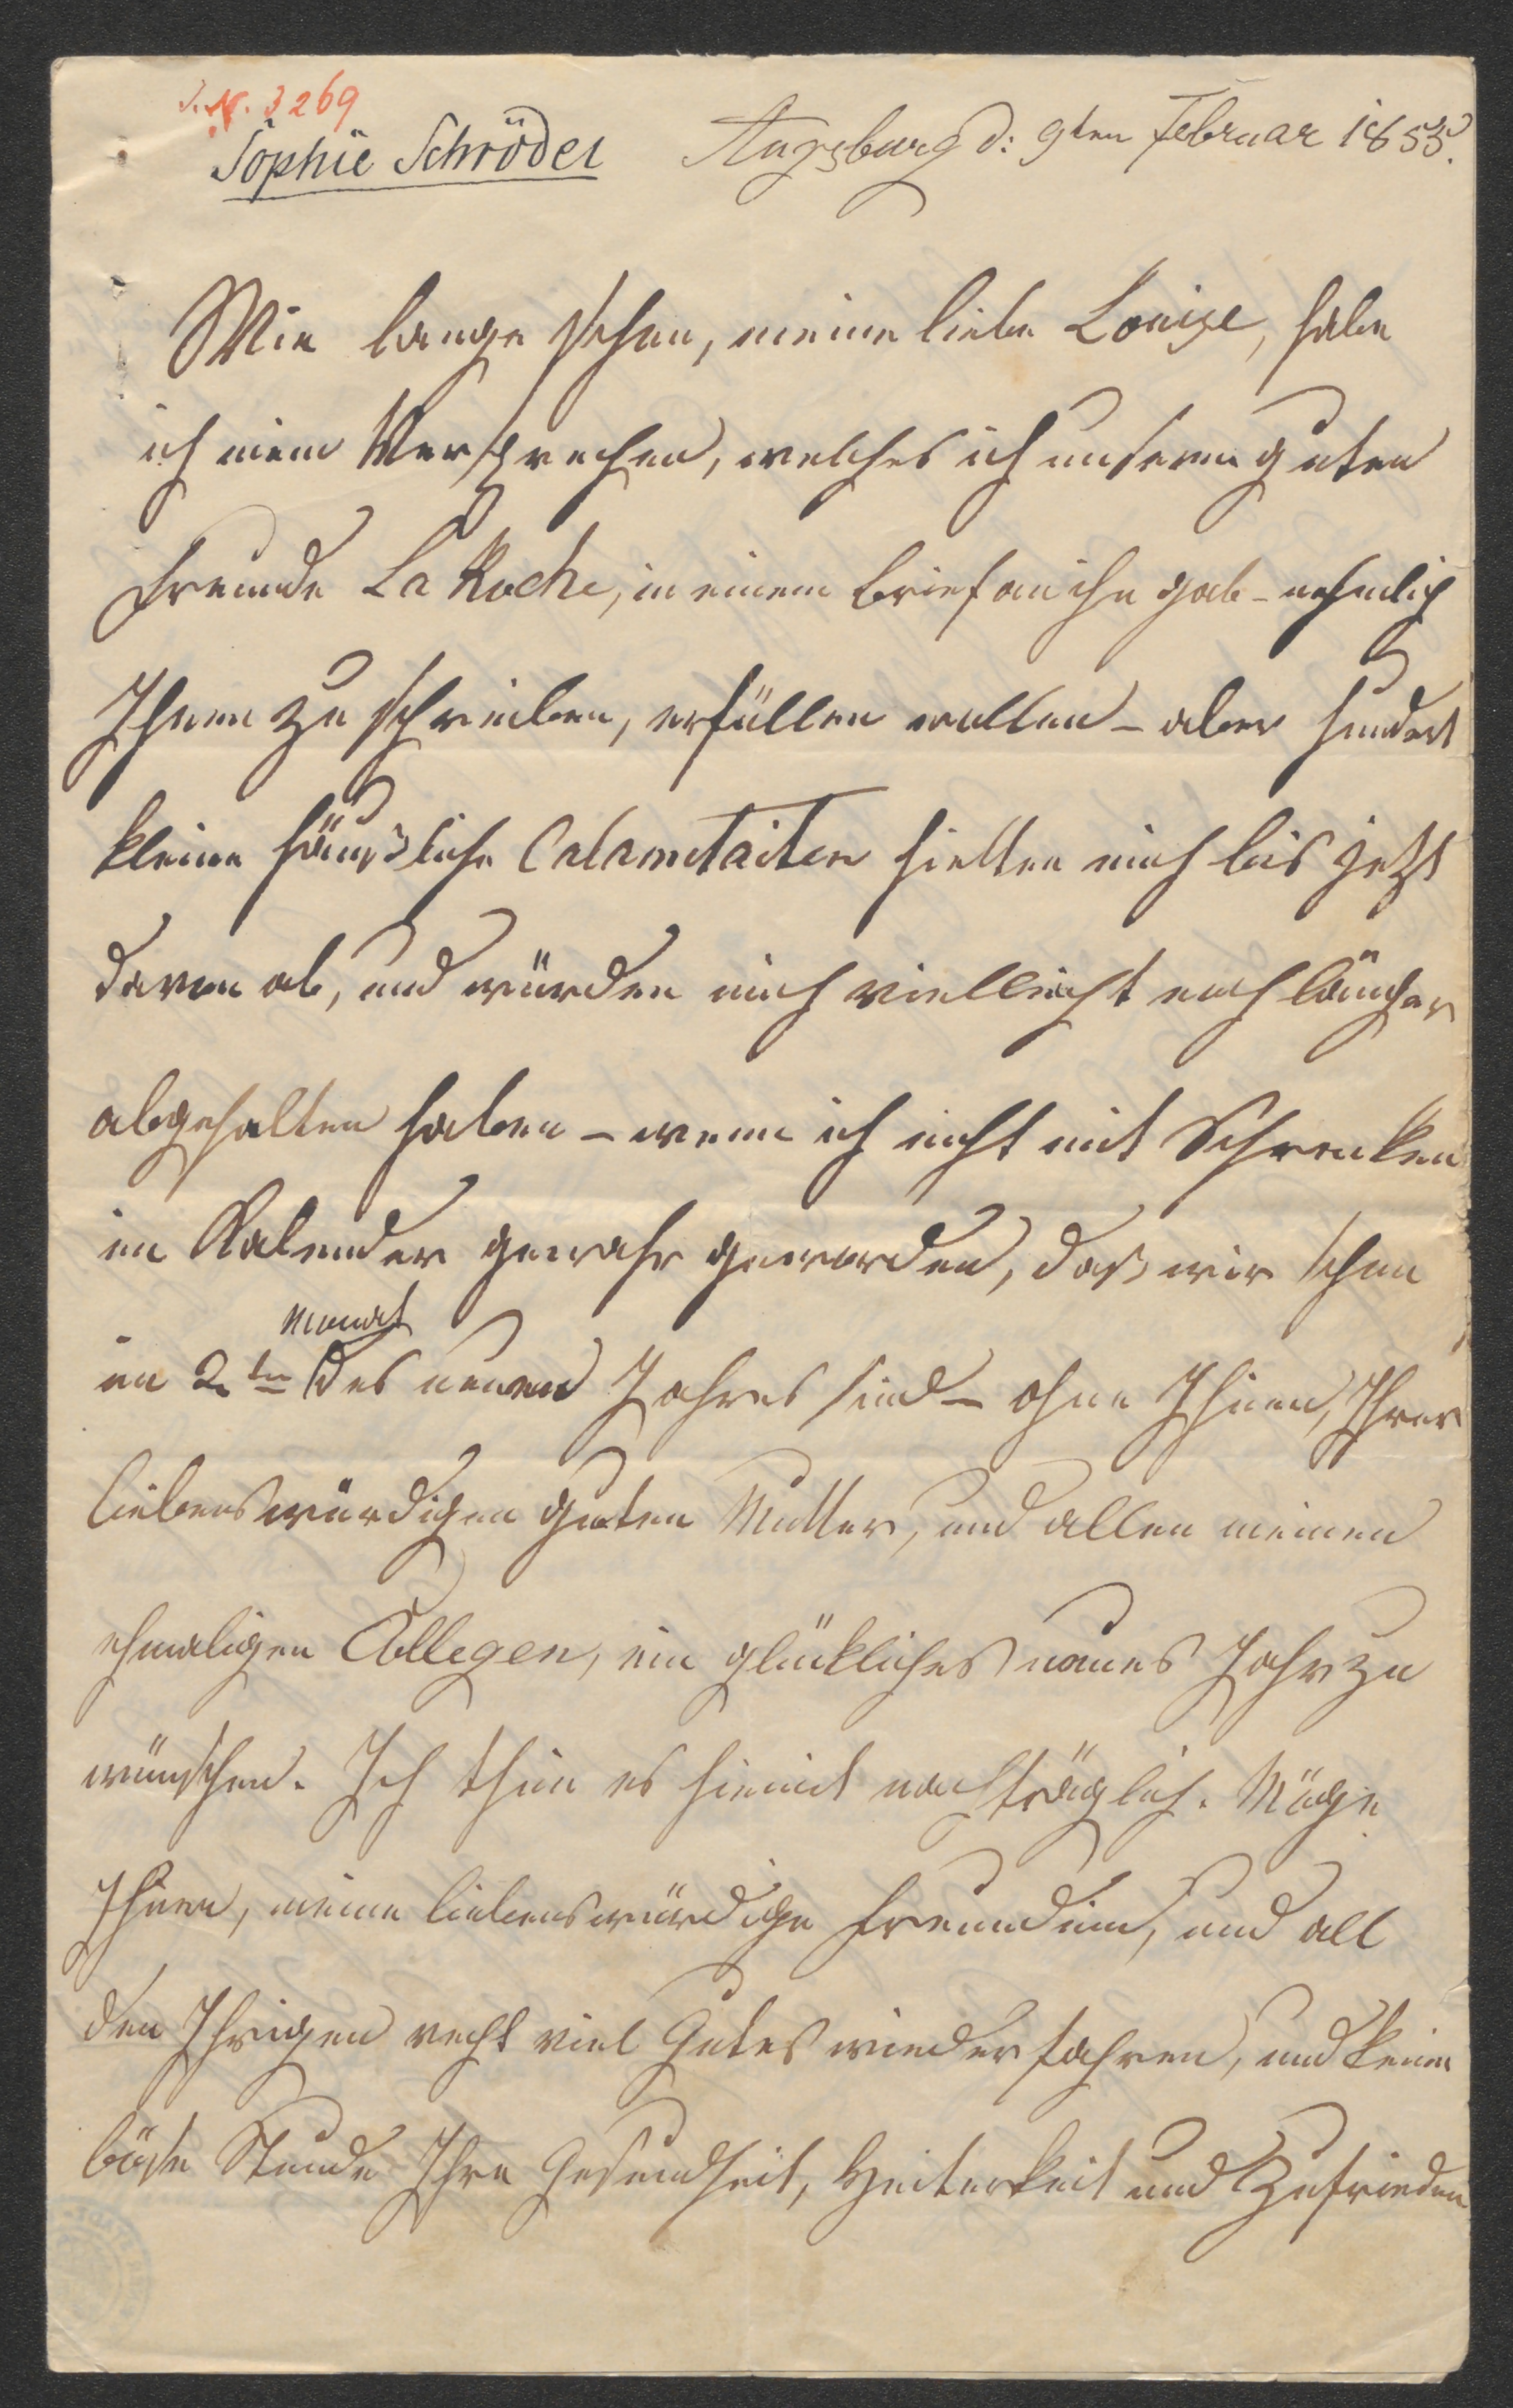 J. N. 3269
Sophie Schröder
Augsburg d: 9ten Februar 1853.
Wie lange schon, meine liebe Louise, habe
ich mein Versprechen, welches ich unserm guten
Freunde La Roche, in einem Brief an ihn gab - nehmlich
Ihnen zu schreiben, erfüllen wollen - aber hundert
kleine häusliche Calamitaiten hielten mich bis jetzt
davon ab, und würden mich vielleicht noch länger
abgehalten haben - wenn ich nicht mit Schrecken
im Kalender gewahr geworden, daß wir schon
Monat
im 2ten des neuen Jahres sind - ohne Ihnen, Ihrer
liebenswürdigen guten Mutter, und allen meinen
ehmaligen Collegen, ein glückliches neues Jahr zu
wünschen. Ich thue es hiemit nachträglich. Möge
Ihnen, meine liebenswürdige Freundinn, und all
den Ihrigen recht viel Gutes wiederfahren, und keine
böse Stunde Ihre Gesundheit, Heiterkeit und Zufrieden